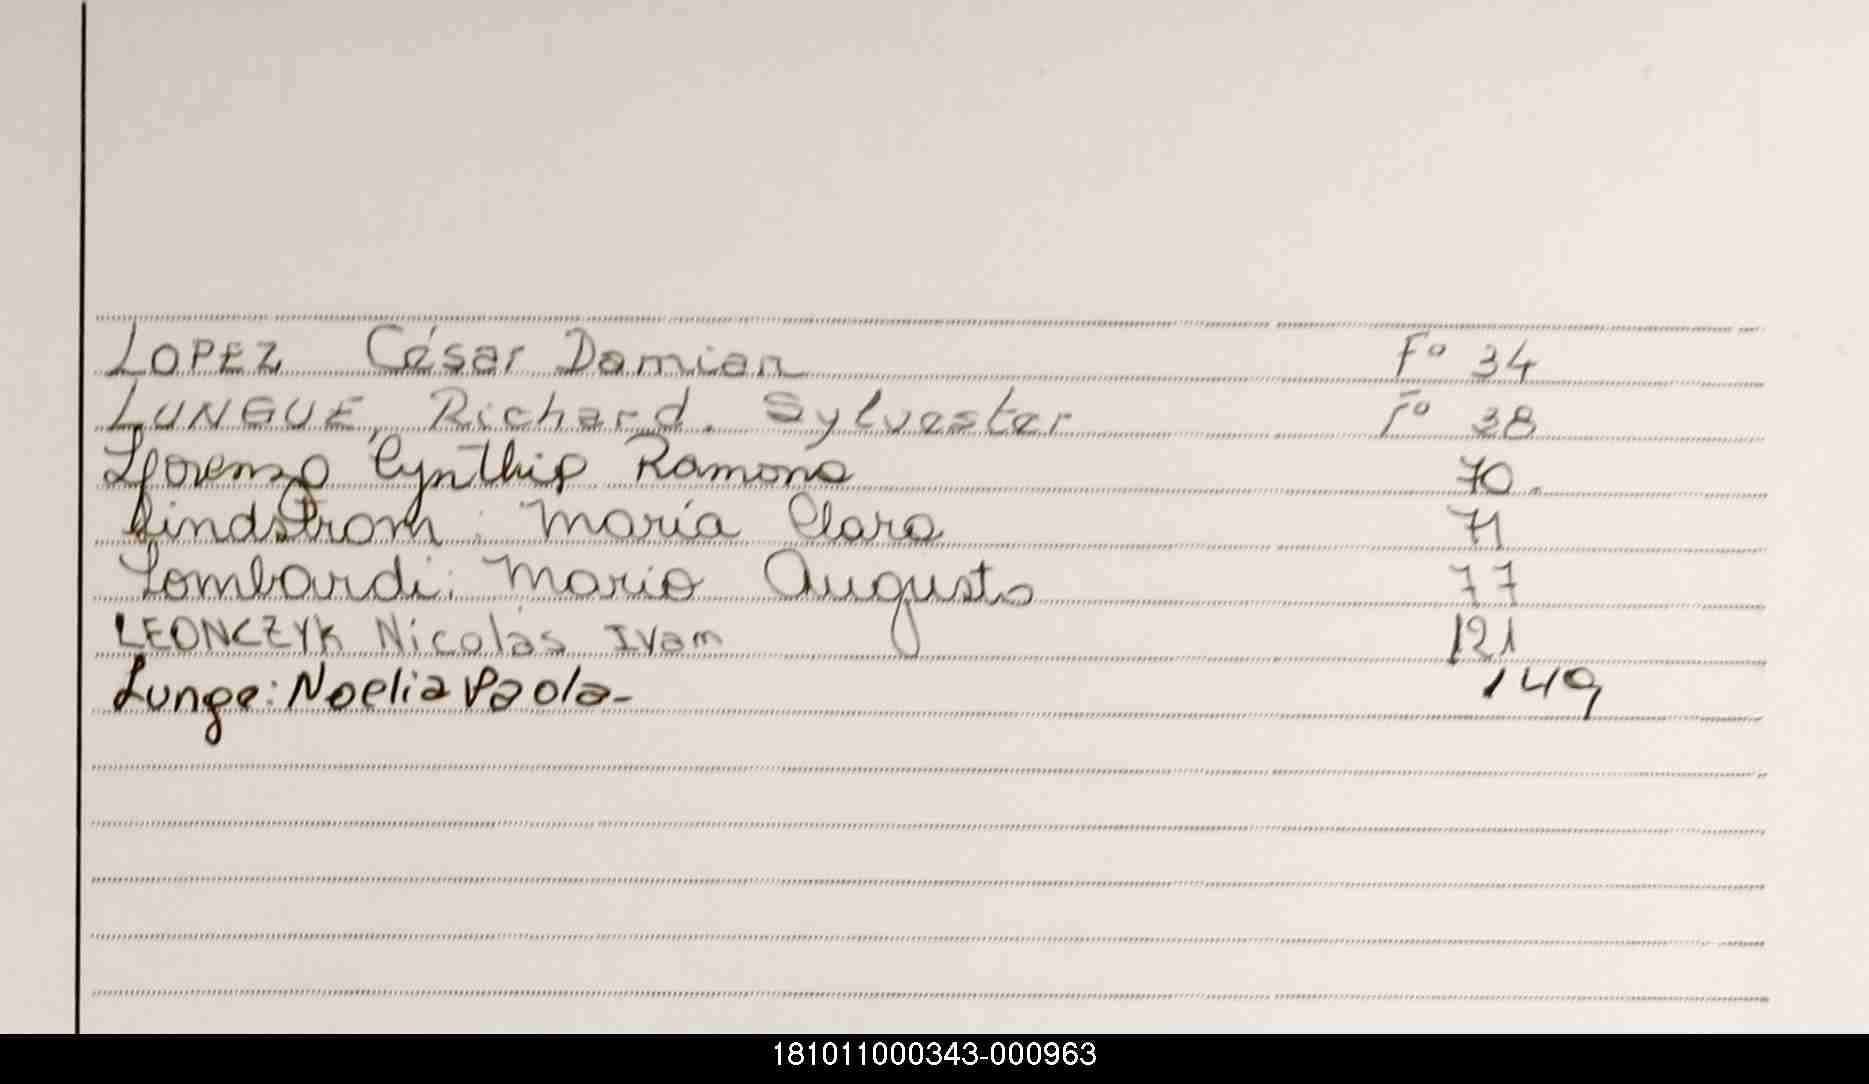 LOPEZ César Damian Fº 34
LUNGUE, Richard. Sylvester Fº 38
Llorenzo Cynthia Ramona 70.
Lindstrom: María Clara 71
Lombardi: Mario Augusto 77
LEONCZYK Nicolás Ivam 121
Lunge: Noelia Paola- 149
181011000343-000963